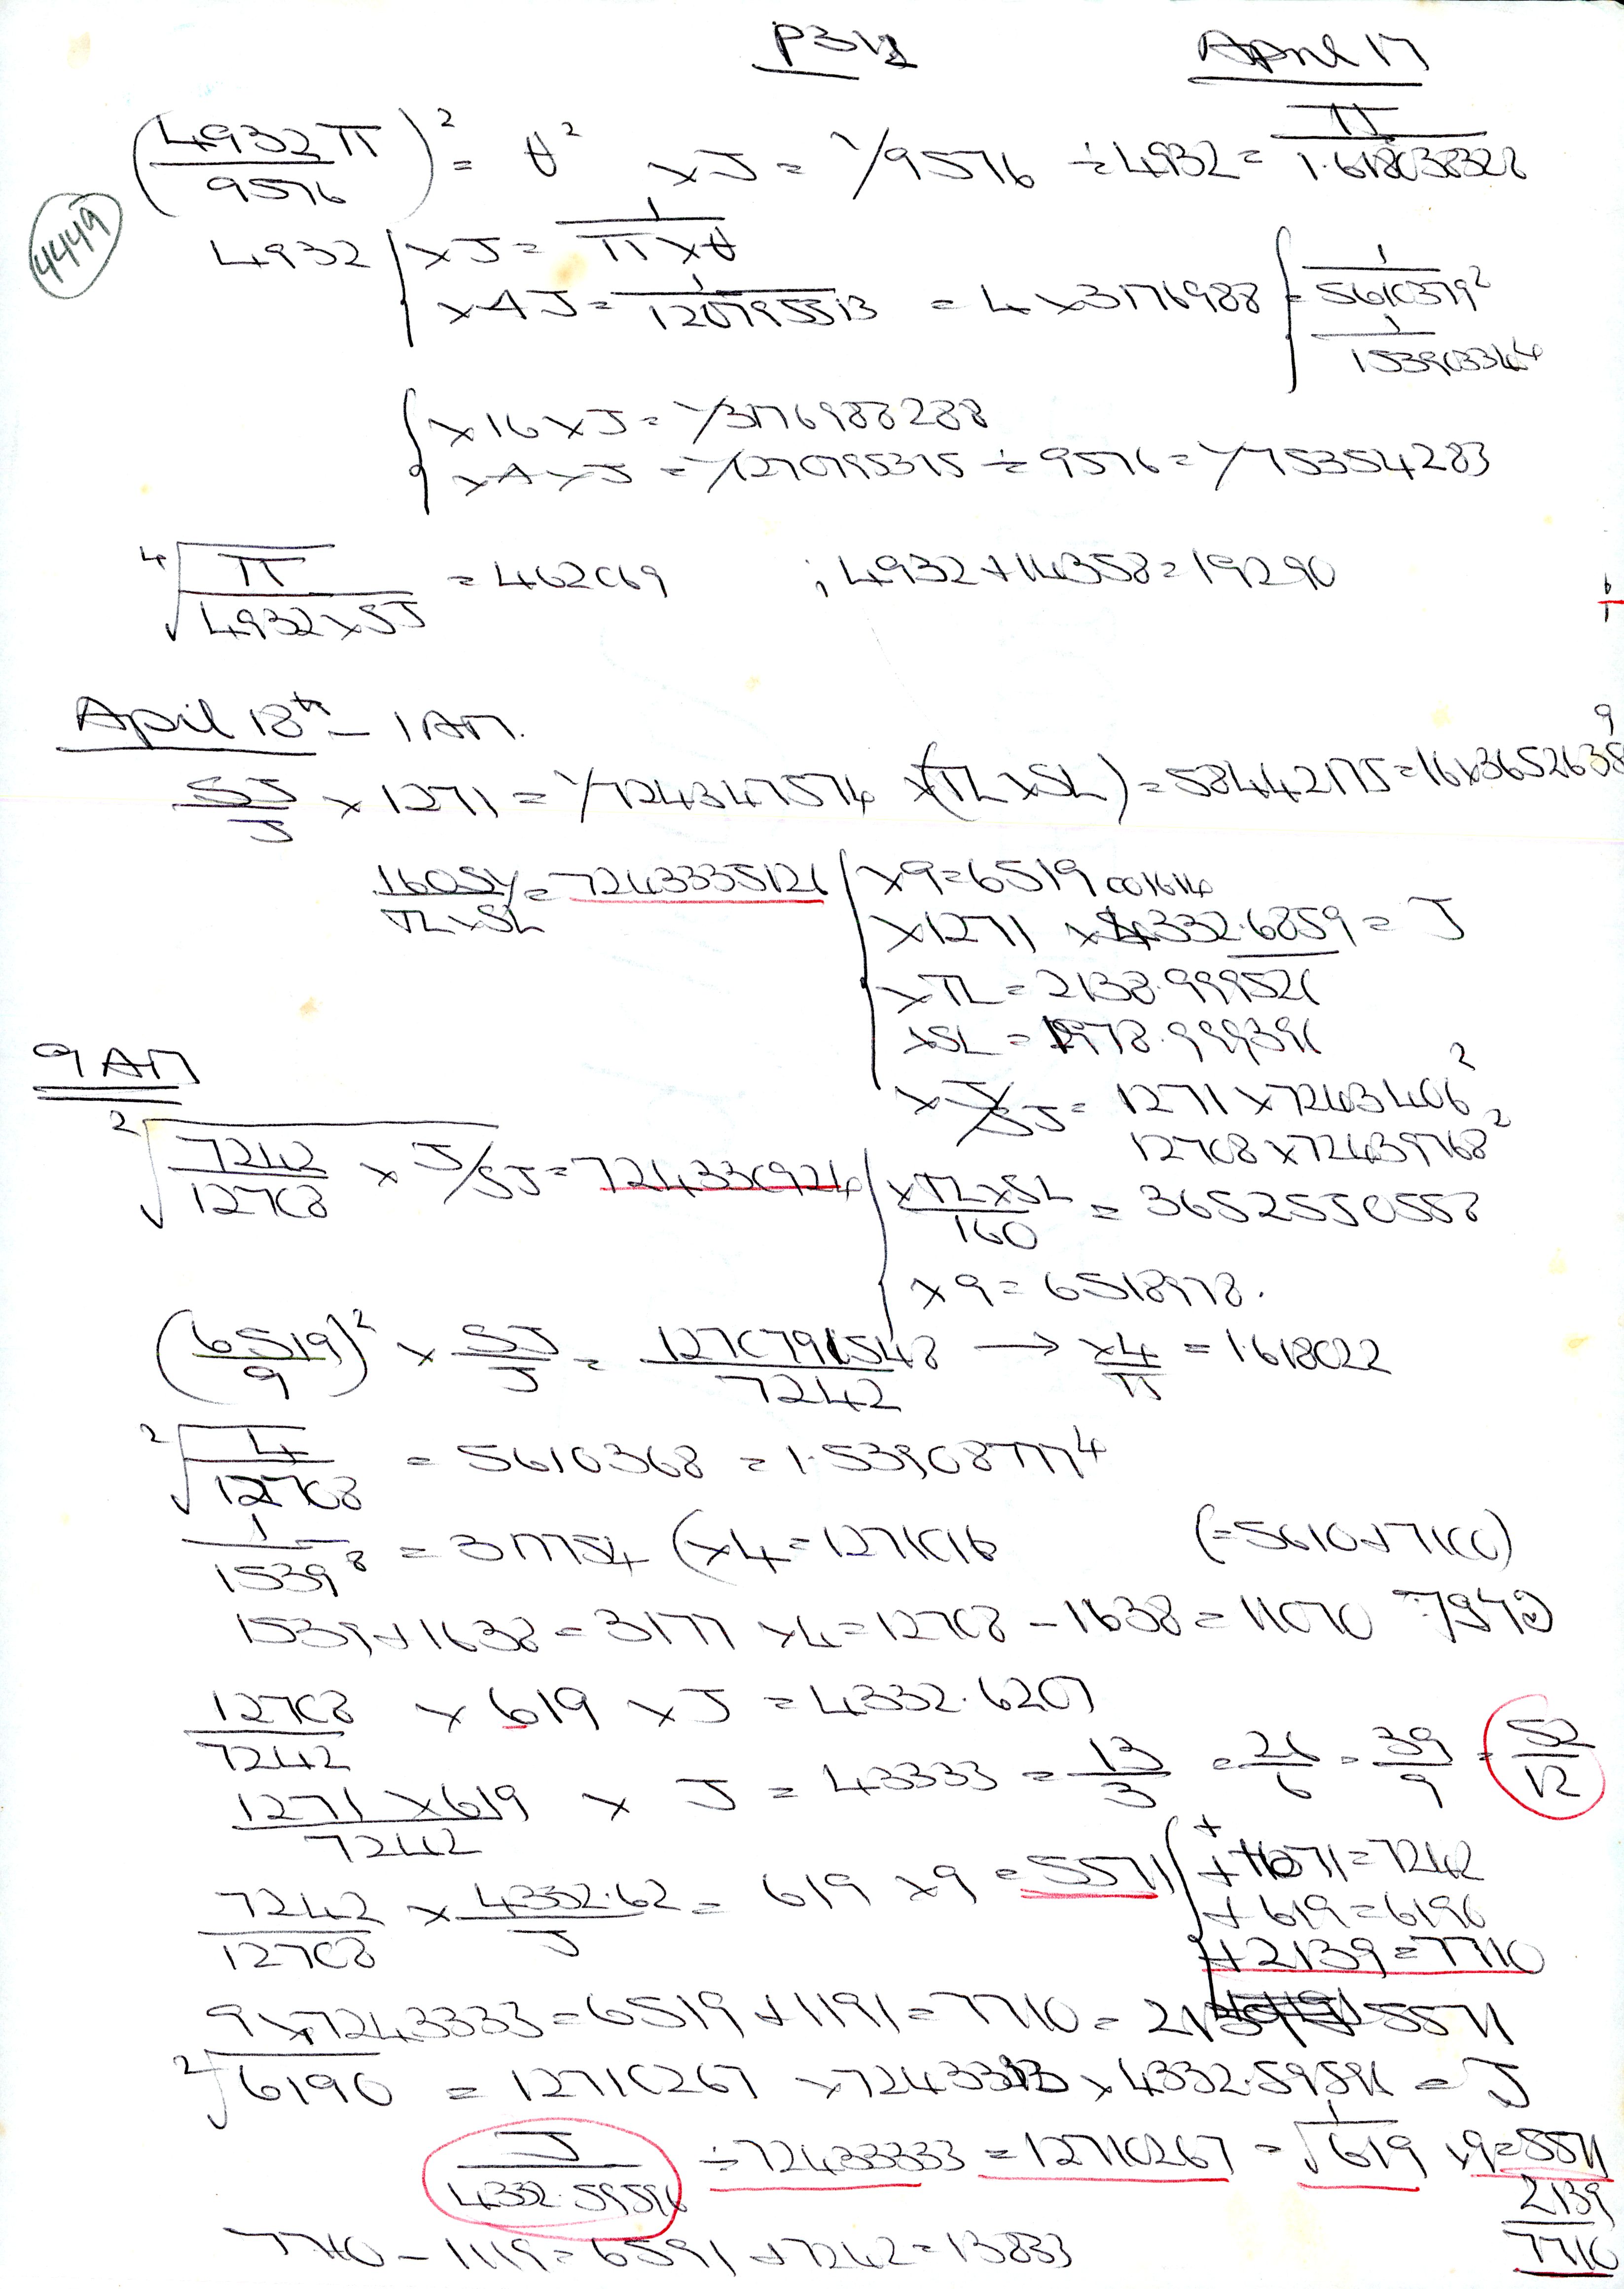 April 17
(4932π/9576)² = θ² × J = 1/9576 ÷ 4932 = π/1.618038328
4449
4932 { × J = 1/(π × θ)
= 4 × 3176988 { = 1/5610379²
× 16 × J = 1/3176988288
× 4 × J = 1/1270795315 ÷ 9576 = 1/75354283
⁴√(π/(4932 × SJ)) = 462069 ; 4932 + 14358 = 19290
April 18th - 1 AM.
SJ/J × 1271 = 1/7243475714 × (TL × SL) = 58442175 = 16 × 3652638
160SY/(TL × SL) = 7243335126 { × 9 = 6519001614
× 1271 × 4332.6859 = J
× TL = 2138.999526
× SL = 1978.999396
× J/SJ = 1271 × 7243406²
12708 × 72439768²
9 AM
²√(7242/12708 × J/SJ) = 7243309214 { × TL × SL/160 = 3652550558
× 9 = 6518978.
(6519/9)² × SJ/J = 1270791548/7242 → ×4/π = 1.618022
²√(4/12708) = 5610368 = 1.53908777⁴
1/1539⁸ = 317754 (×4 = 1271016 (= 5610 + 7100)
1539 + 1638 = 3177 × 4 = 12708 - 1638 = 11070
12708/7242 × 619 × J = 4332.6207
1271 × 619/7242 × J = 43333 = 13/3 = 26/6 = 39/9 = 52/12
7242/12708 × 4332.62/J = 619 × 9 = 5571 { + 1671 = 7242
+ 619 = 6190
+ 2139 = 7710
9 × 7243333 = 6519 + 1191 = 7710 = 2139 5571
²√6190 = 12710267 × 7243333 × 4332.59596 = J
J/4332.59596 ÷ 72433333 = 12710267 = 1/√619 × 9 = 5571
2139
7710
7710 - 1119 = 6591 + 7242 = 13833